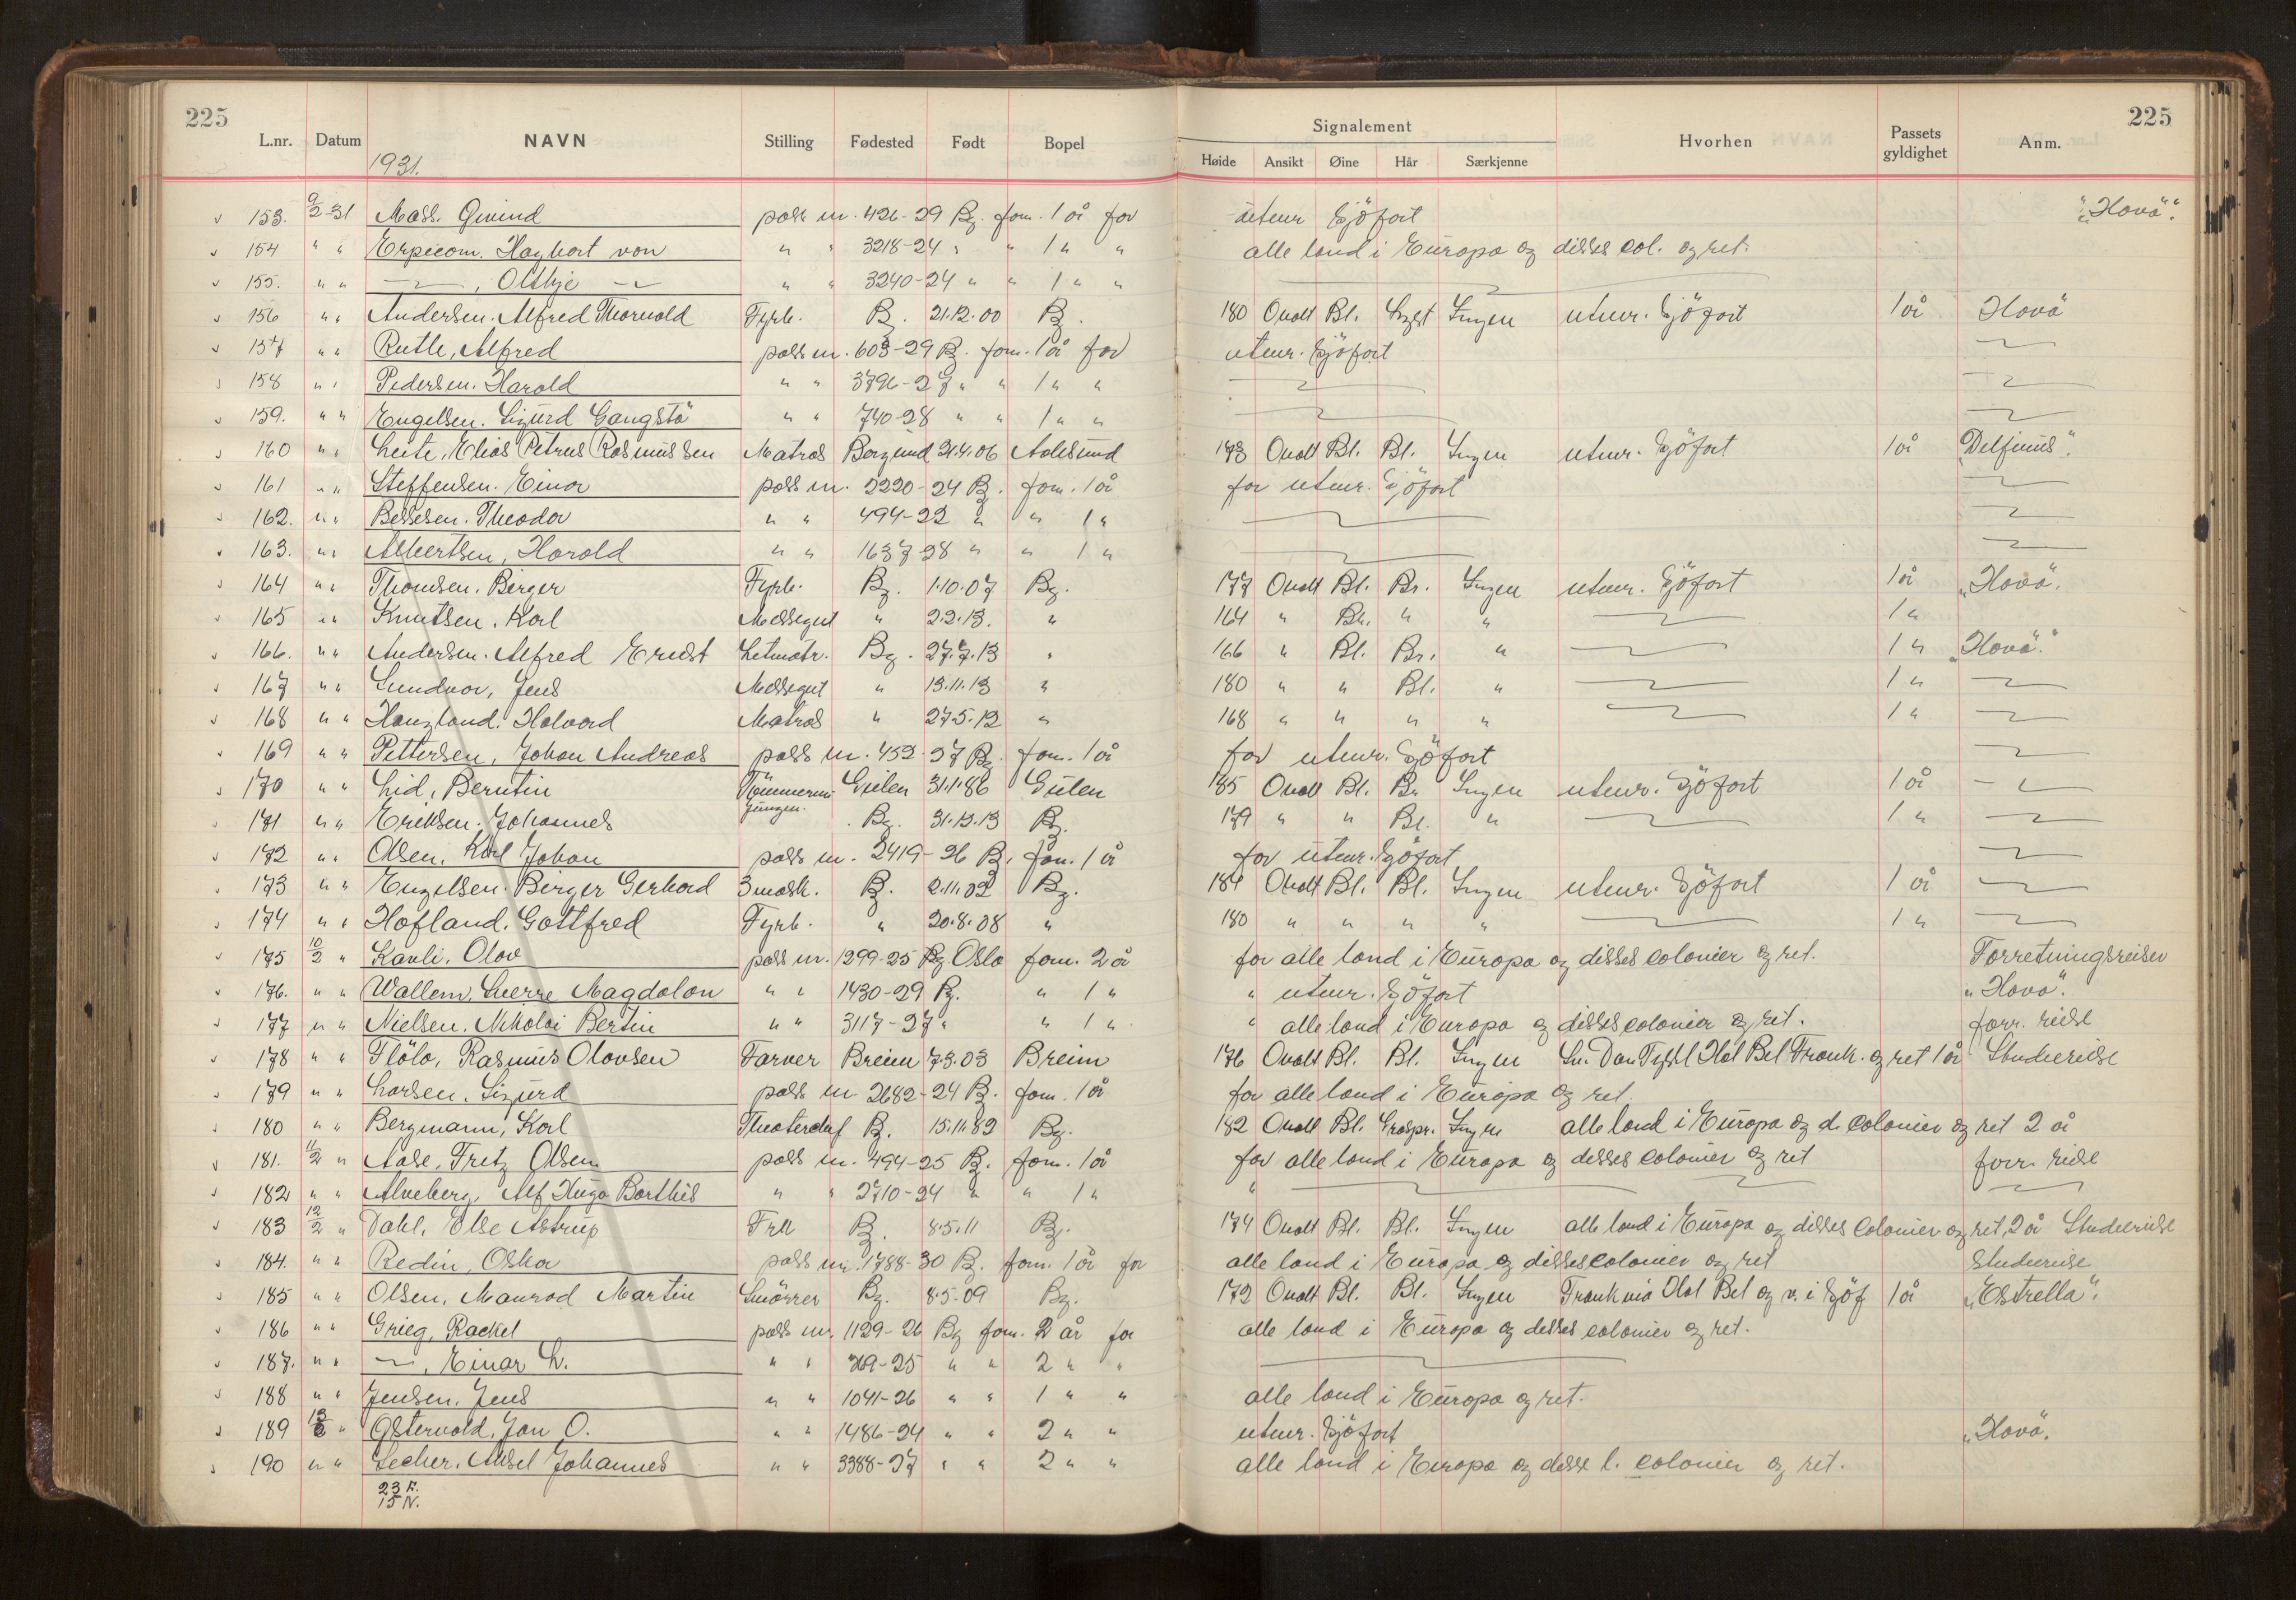 225
225
L.nr. Datum NAVN Stilling Fødested Født Bopel
Signalement
Høide Ansikt Øine Hår Særkjenne
Hvorhen Passets gyldighet Anm.
1931.
153. 9/2-31 Mass. Øivind pass nr. 426-29 Bg. forn. 1 år for utenr. Sjöfart "Hovö".
154 " " Erpecom. Hagbart von " " 3218-24 " " 1 " " alle land i Europa og disses col. og ret.
155. " " — , Olskje — " " 3240-24 " " 1 " "
156 " " Andersen. Alfred Thorvald Fyrb. Bg. 21.12.00 Bg. 180 Ovalt Bl. Lyst Ingen utenr. Sjöfart 1 år Hovö
157 " " Rutle, Alfred pass nr. 603-29 Bg. forn. 1 år for utenr. Sjöfart —
158 " " Pedersen. Harald " " 3796-27 " " 1 " " — —
159. " " Engelsen. Sigurd Gangstö " " 740-28 " " 1 " " — —
160 " " Leite, Elias Petrus Rasmussen Matros Borgund 21.4.06 Aalesund 173 Ovalt Bl. Bl. Ingen utenr. Sjöfart 1 år "Delfinus".
161 " " Steffensen. Einar pass nr. 2220-24 Bg. forn. 1 år for utenr. Sjöfart —
162. " " Bessesen. Theodor " " 494-22 " " 1 " — —
163. " " Albertsen, Harald " " 1637-28 " " 1 " — —
164 " " Thomsen. Birger Fyrb. Bg. 1.10.07 Bg. 177 Ovalt Bl. Br. Ingen utenr. Sjöfart 1 år "Hovö".
165 " " Knutsen. Karl Messegut " 2.2.13. " 164 " Br. " " — 1 "
166. " " Andersen. Alfred Ernst Letmatr. Bg. 27.7.13 " 166 " Bl. Br. " — 1 " "Hovö".
167 " " Sundvor, Jens Messegut " 13.11.13 " 180 " " Bl. " — 1 " —
168 " " Haugland. Halvard Matros " 27.5.12 " 168 " " " " — 1 " —
169 " " Pettersen, Johan Andreas pass nr. 452-27 Bg. forn. 1 år for utenr. Sjöfart —
170 " " Lid, Berntin Tömmerm. Gulen 31.1.86 Gulen 185 Ovalt Bl. Br Ingen utenr. Sjöfart 1 år —
171 " " Eriksen. Johannes Jungm. Bg. 31.12.13 Bg. 179 " " Bl. " — 1 " —
172 " " Olsen, Karl Johan pass nr. 2419-26 Bg. forn. 1 år for utenr. Sjöfart —
173 " " Engelsen. Birger Gerhard 3 mask. Bg. 2.11.02 Bg. 184 Ovalt Bl. Bl. Ingen utenr. Sjöfart 1 år —
174 " " Hofland. Gottfred Fyrb. " 20.8.08 " 180 " " " " — 1 " —
175 10/2 " Kavli, Olav pass nr. 1299-25 Bg Oslo forn. 2 år for alle land i Europa og disses colonier og ret. Forretningsreiser
176. " " Wallem, Sverre Magdalon " " 1430-29 Bg. " 1 " " utenr. Sjöfart "Hovö".
177 " " Nielsen. Nikolai Bertin " " 3117-27 " " 1 " " alle land i Europa og disses colonier og ret. forr. reise
178 " " Flölo, Rasmus Olavsen Farver Breim 7.3.03 Breim 176 Ovalt Bl. Bl. Ingen Sv. Dan Tyskl Hol Bel Frank. og ret 1 år Studiereise
179 " " Larsen. Sigurd pass nr 2682-24 Bg. forn. 1 år for alle land i Europa og ret.
180 " " Bergmann, Karl Theaterchef Bg. 15.11.82 Bg. 182 Ovalt Bl. Graspr. Ingen alle land i Europa og d. colonier og ret 2 år
181. 11/2 " Aase, Fretz Olsen pass nr. 494-25 Bg. forn. 1 år for alle land i Europa og disses colonier og ret forr. reise
182 " " Alveberg, Alf Hugo Barthis " " 2710-24 " " 1 " " — —
183 12/2 " Dahl. Else Astrup Frk Bg. 8.5.11 Bg. 174 Ovalt Bl. Bl. Ingen alle land i Europa og disses colonier og ret, 2 år Studiereise
184. " " Redin, Oskar pass nr. 1788-30 Bg. forn. 1 år for alle land i Europa og disses colonier og ret Studiereise
185 " " Olsen, Manrad Martin Smörrer Bg. 8.5.09 Bg. 172 Ovalt Bl. Bl. Ingen Frank via Hol Bel og u. i Sjöf 1 år "Estrella".
186 " " Grieg, Rackel pass nr. 1129-26 Bg forn. 2 år for alle land i Europa og disses colonier og ret.
187. " " — , Einar L. " " 719-25 " " 2 " " —
188 " " Jensen. Jens " " 1041-26 " " 1 " " alle land i Europa og ret.
189 13/2 " Östervold, Jan O. " " 1486-24 " " 2 " " utenr. Sjöfart "Hovö".
190 " " Lecher. Aksel Johannes " " 3388-27 " " 2 " " alle land i Europa og disse l. colonier og ret.
23 F.
15 N.